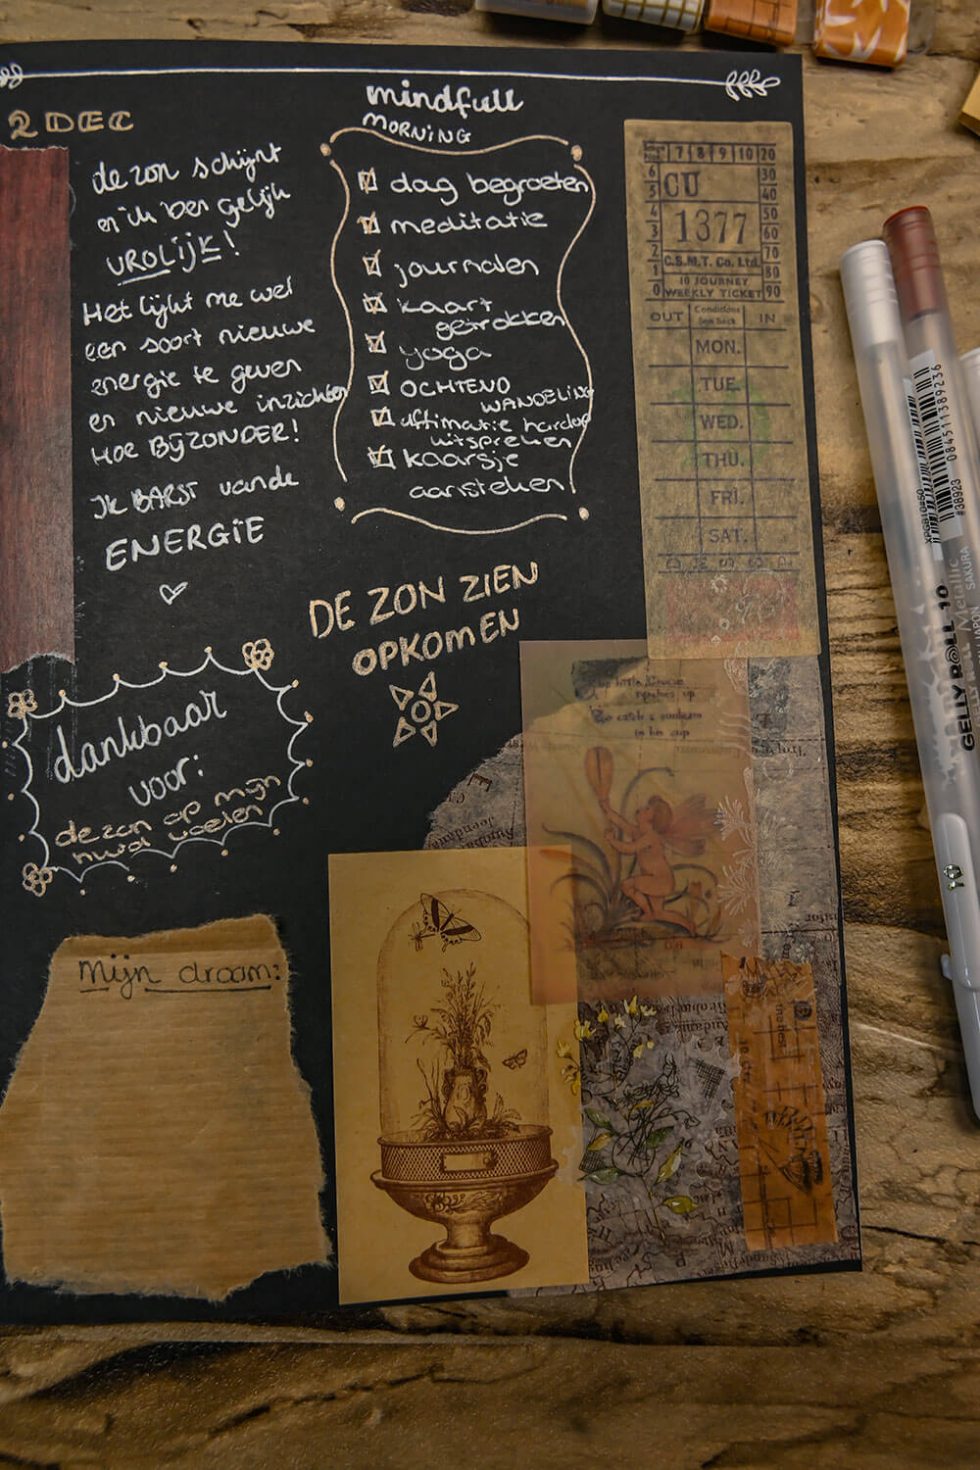 2 DEC
de zon schijnt
en ik ben gelijk
VROLIJK!
Het lijkt me wel
een soort nieuwe
energie te geven
en nieuwe inzichten
HOE BIJZONDER!
Ik BARST van de
ENERGIE
mindfull
MORNING
dag begroeten
meditatie
journalen
kaart
getrokken
yoga
OCHTEND
WANDELING
affirmatie hardop
uitspreken
kaarsje
aansteken
DE ZON ZIEN
OPKOMEN
dankbaar
voor:
de zon op mijn
huid voelen
Mijn droom:
7 8 9 10 20
6 30
5 CU 40
4 50
3 1377 60
2 70
1 C.S.M.T. Co. Ltd. 80
10 JOURNEY
0 WEEKLY TICKET 90
OUT Conditions IN
see back
MON.
TUE.
WED.
THU.
FRI.
SAT.
to catch a sunbeam
in his cup
XPGB10#50
#38923
084511389236
GELLY ROLL 10
Metallic
SAKURA
10